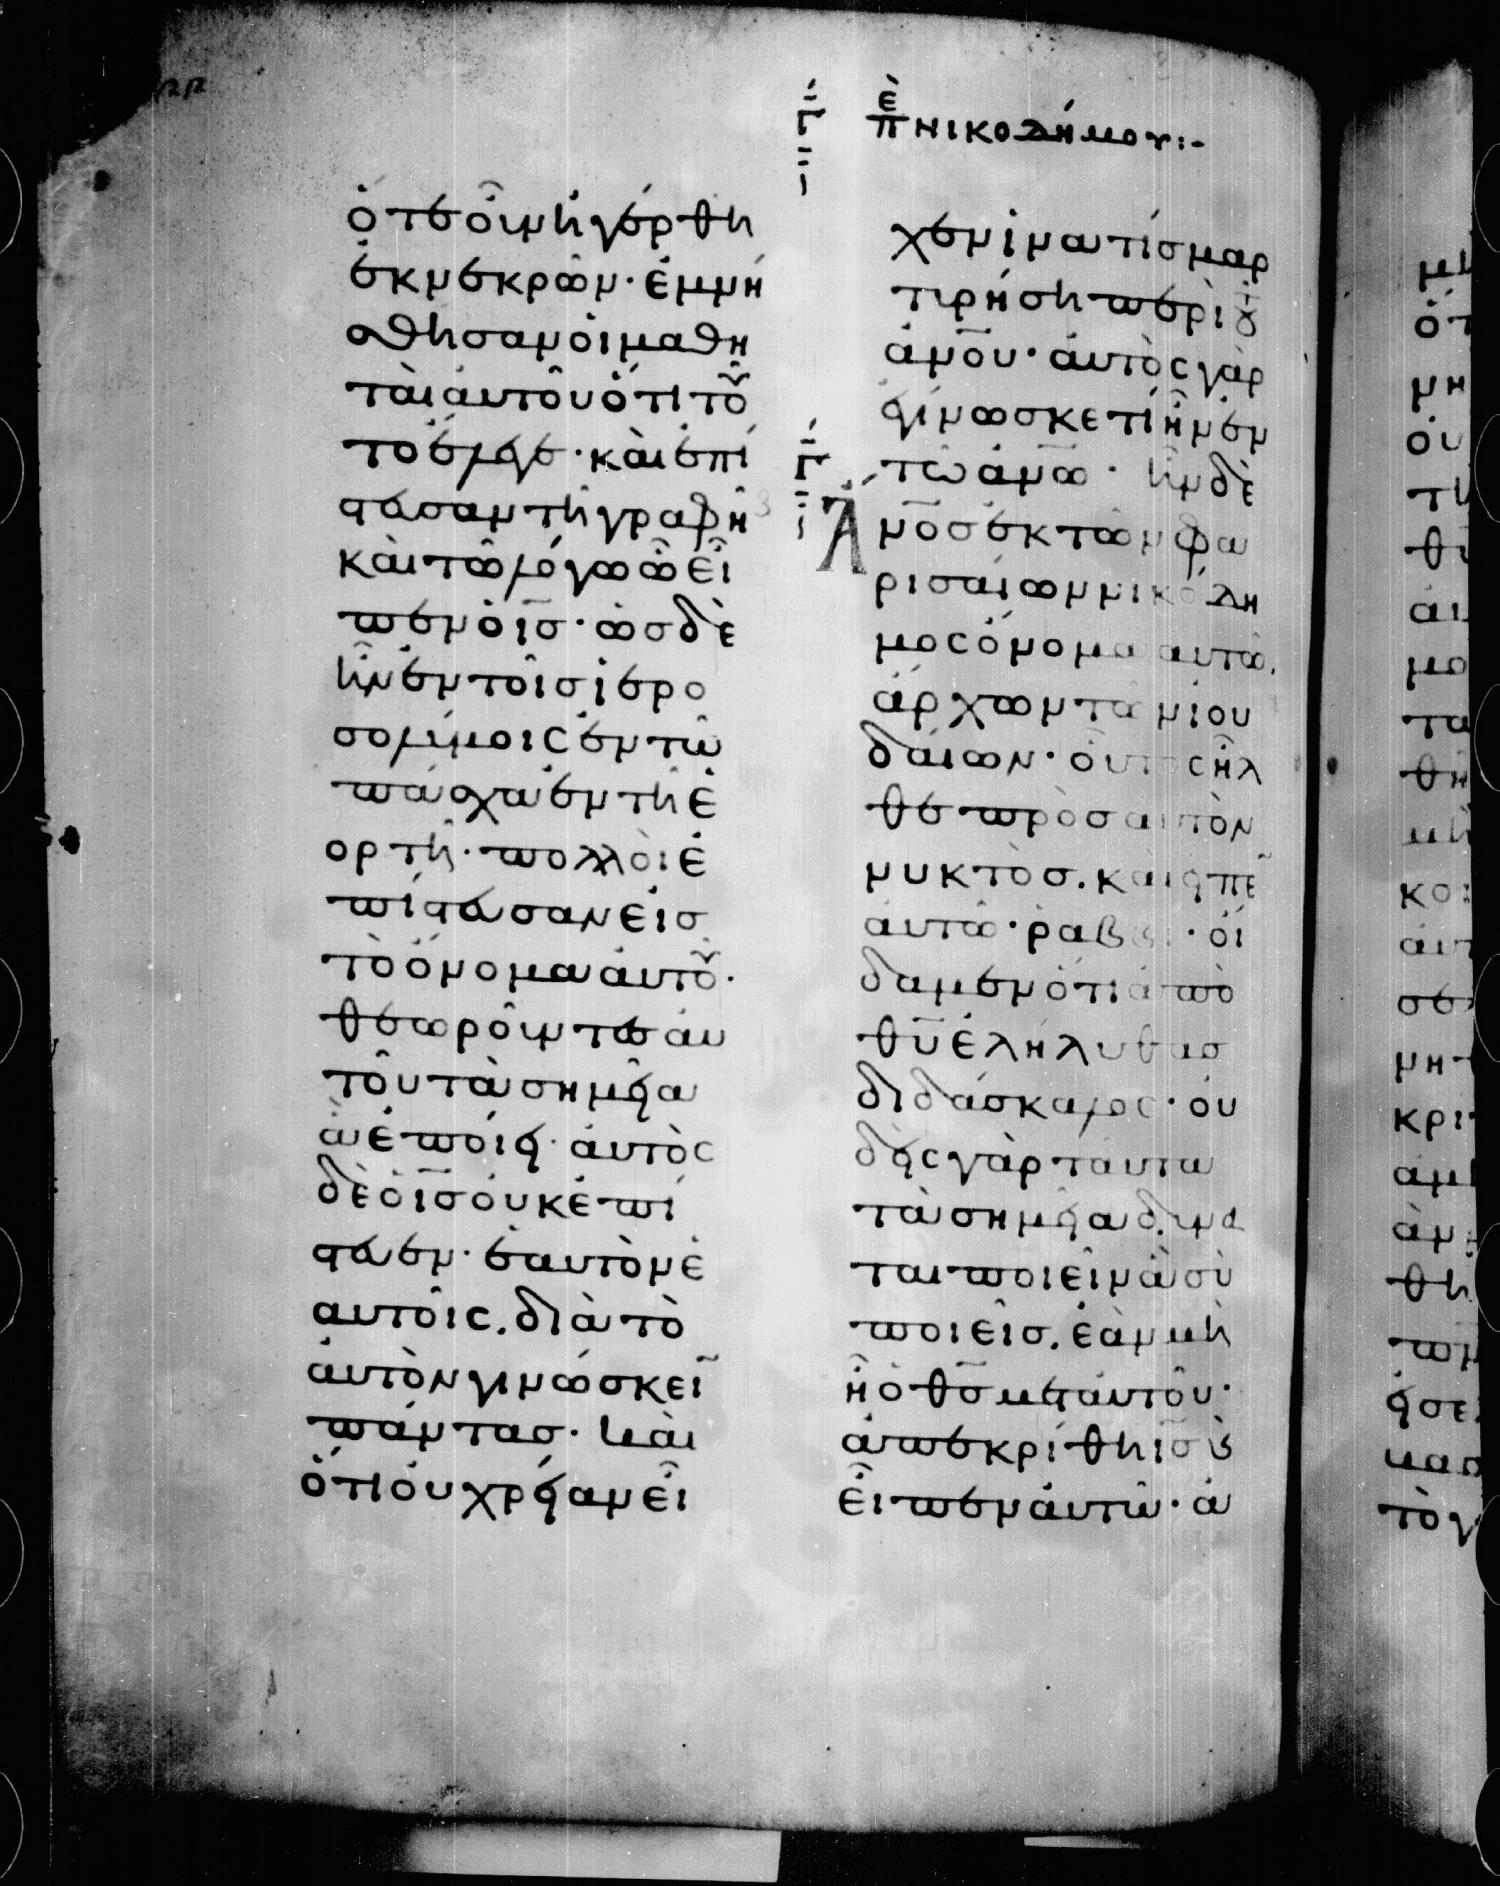 Γ ἐπ νικοδήμου:-
ὅτε οὖν ἠγέρθη
ἐκ νεκρῶν· ἐμνή
σθησαν οἱ μαθη
ταὶ αὐτοῦ ὅτι τοῦ
το ἔλεγε· καὶ ἐπί
στευσαν τῆ γραφῆ
καὶ τῶ λόγω ὧ εἶ
πεν ὁ ισ· ὡσ δὲ
ἦν ἐν τοῖσ ἱερο
σολύμοις ἐν τῶ
πάσχα ἐν τῆ ἑ
ορτῆ· πολλοὶ ἐ
πίστευσαν εἰσ
τὸ ὄνομα αὐτοῦ·
θεωροῦντεσ αὐ
τοῦ τὰ σημεῖα
ἃ ἐποίει· αὐτὸς
δὲ ὁ ισ οὐκ ἐπί
στευεν· ἑαυτὸν ἐ
αυτοῖς. διὰ τὸ
ἀυτὸν γινώσκειν
πάντασ· καὶ
ὅτι οὐ χρείαν εἶ
χεν ἵνα τίσ μαρ
τυρήση περὶ τοῦ
ἀνου· ἀυτὸς γὰρ
γίνωσκε τί ἦν ἐν
τῶ ἀνω· ἦν δὲ
Γ Ἄ
νοσ ἐκ τῶν φα
ρισαίων νικόδη
μος ὄνομα αυτῶ,
ἄρχων τῶν ἰου
δαίων· οὗτος ἦλ
θε πρὸσ αυτὸν
νυκτὸσ. καὶ εἶπεν
ἀυτῶ· ῥαββι· οἴ
δαμεν ὅτι ἀπὸ
θυ ἐλήλυθασ
διδάσκαλος· οὐ
δεὶς γὰρ ταῦτα
τὰ σημεῖα δύνα
ται ποιεῖν ἃ σὺ
ποιεῖσ. ἐὰν μὴ
ἦ ὁ θσ μετ αὐτοῦ·
ἀπεκρίθη ισ καὶ
εἶπεν ἀυτῶ· ἀ